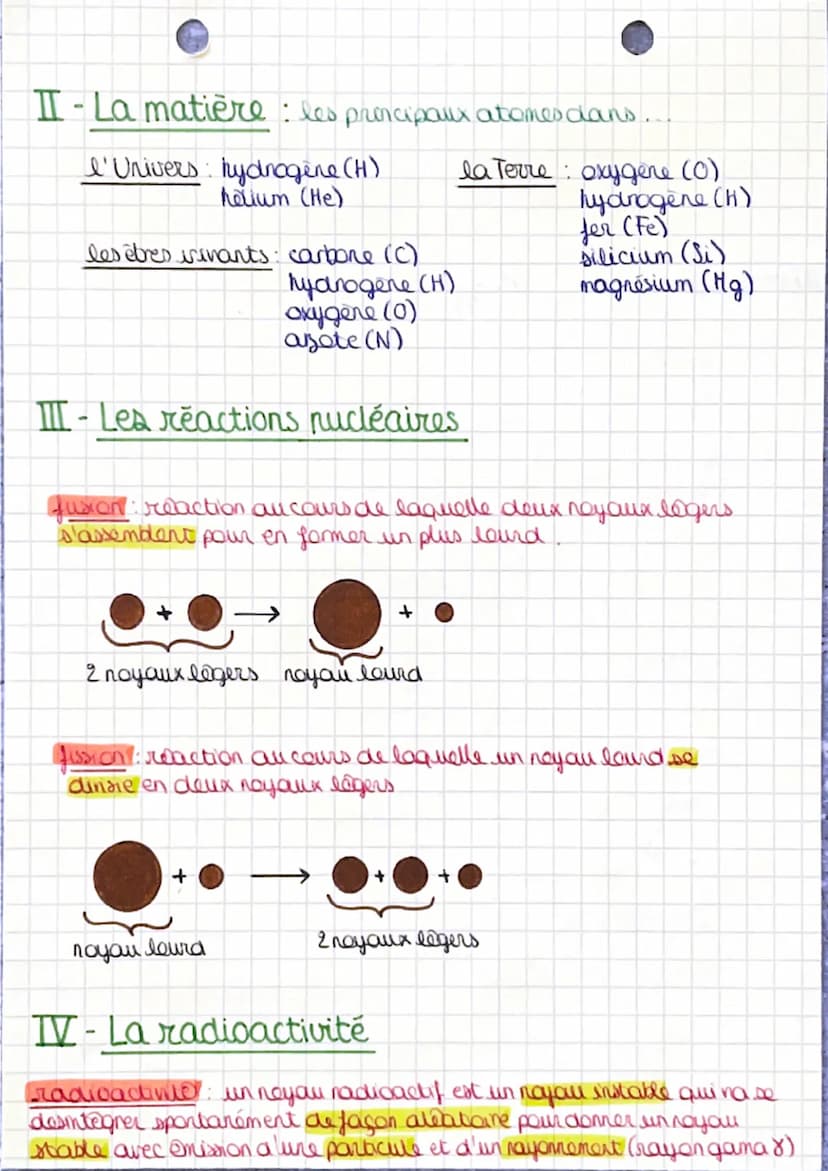 II - La matière : les principaux atomes dans...
l'Univers : hydrogène (H)
hélium (He)
la Terre : oxygène (O)
hydrogène (H)
fer (Fe)
silicium (Si)
magnésium (Mg)
les êtres vivants : carbone (C)
hydrogène (H)
oxygène (O)
azote (N)
III - Les réactions nucléaires
fusion : réaction au cours de laquelle deux noyaux légers
s'assemblent pour en former un plus lourd.
+ → +
2 noyaux légers noyau lourd
fission : réaction au cours de laquelle un noyau lourd se
divise en deux noyaux légers
+ → + +
noyau lourd 2 noyaux légers
IV - La radioactivité
radioactivité : un noyau radioactif est un noyau instable qui va se
desintégrer spontanément de façon aléatoire pour donner un noyau
stable avec émission d'une particule et d'un rayonnement (rayon gama γ)